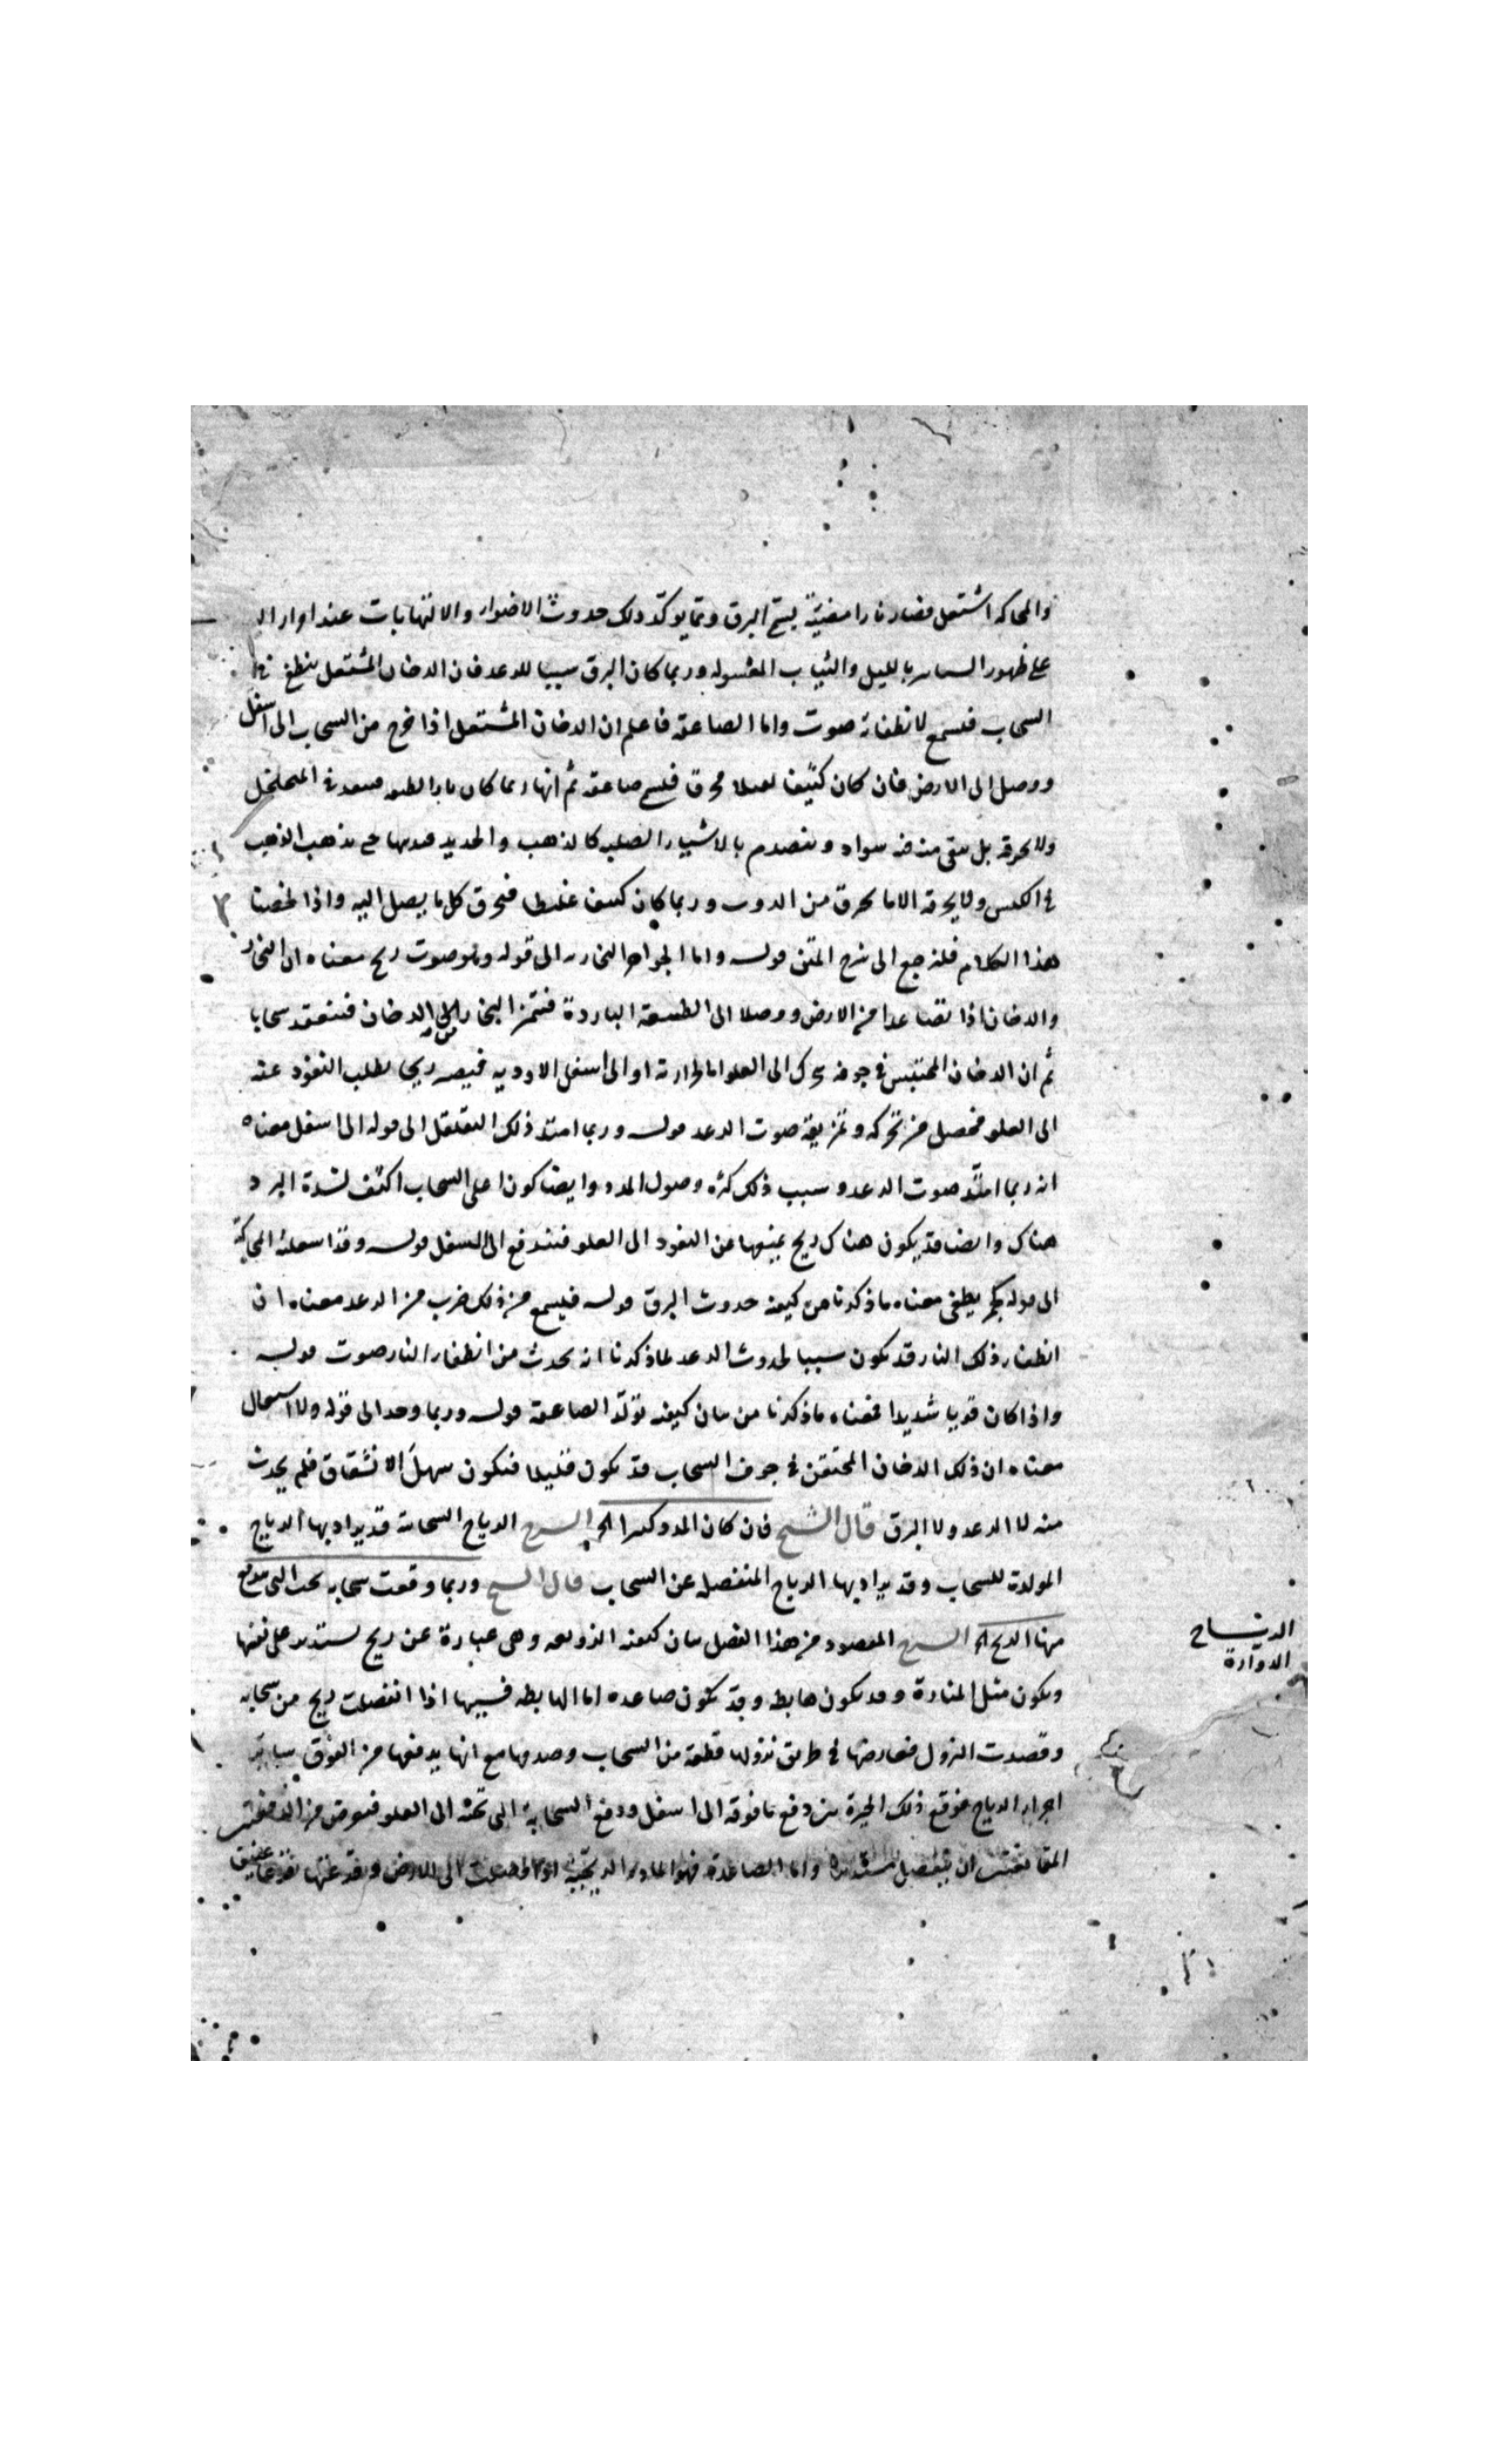 والمحاكة اشتعل فصار نارا مضيئة يسمى البرق ومما يؤكد ذلك حدوث الاضواء والالتهابات عند امرار اليد
على ظهور السنانير بالليل والثياب المغسوله وربما كان البرق سببا للرعد فان الدخان المشتعل ينطفى في
السحاب فيسمع لانطفائه صوت واما الصاعقة فاعلم ان الدخان المشتعل اذا خرج من السحاب الى اسفل
ووصل الى الارض فان كان كثيفا ثقيلا محرق فليسم صاعقة ثم انها ربما كان نارا لطيفه فينفد في المتخلخل
ولا يحرقه بل يبقى منه فيه سواد وينصدم بالاشياء الصلبه كالذهب والحديد فيذيبها حتى يذهب الذهب
في الكيس ولا يحرقه الا ما يحرق من الذوب وربما كان كثيفا غليظا فيحرق كل ما يصل اليه واذا لخصنا
هذا الكلام فلنرجع الى شرح المتن قوله واما الجواهر البخاريه الى قوله وهو صوت ريح معناه ان البخار
والدخان اذا تصاعدا من الارض ووصلا الى الطبقة الباردة فتميز البخار الدخان فينعقد سحابا
ثم ان الدخان المحتبس في جوفه تحرك الى العلو اما لحرارته او الى اسفل لبروديه فيصير ريحا يطلب النفوذ عنه
الى العلو فيحصل من تحركه وتمزيقه صوت الرعد قوله وربما امتد ذلك التقلقل الى قوله الى اسفل معناه
انه ربما امتد صوت الرعد وسبب ذلك كثره وصول المدد وايضا كون اعلى السحاب اكثف لشدة البرد
هناك وايضا قد يكون هناك ريح يمنعها عن النفوذ الى العلو فيندفع الى السفل قوله وقد اشعلته المحاكة
الى قوله يطفى معناه ما ذكرنا من كيفية حدوث البرق قوله فيسمع من ذلك ضرب من الرعد معناه ان
انطفاء ذلك النار قد يكون سببا لحدوث الرعد لما ذكرنا انه يحدث من انطفاء النار صوت قوله
واذا كان قويا شديدا فمعناه ما ذكرنا من بيان كيفية تولد الصاعقة قوله وربما وجد الى قوله ولا اشتعال
معناه ان ذلك الدخان المحتقن في جوف السحاب قد يكون قليلا فيكون سهل الانشقاق فلم يحدث
منه لا الرعد ولا البرق قال الشيخ فان كان المدد كثيرا الخ الشرح الرياح السحابية قد يراد بها الرياح
المولدة للسحاب وقد يراد بها الرياح المنفصله عن السحاب قال الشيخ وربما وقعت سحابه تحت التي يندفع
منها الريح الخ الشرح المقصود من هذا الفصل بيان كيفية الزوبعه وهى عبارة عن ريح يستدير على نفسها
ويكون مثل المنارة وقد يكون هابطه وقد يكون صاعده اما الهابطه فسببها اذا انفصلت ريح من سحابه
وقصدت النزول فعارضها في طريق نزولها قطعة من السحاب وصدمها مع انها يدفعها من الفوق سائر
اجزاء الرياح فوقع ذلك الجزء بين دفع ما فوقه الى اسفل ودفع السحابة التي تحته الى العلو فيعرض من الدفعين
المتمانعين ان يستدير واما الصاعدة فهو ان المادة الريحية اذا وصلت الى الارض وقرعتها قرعا عنيف
الرياح
الدوارة